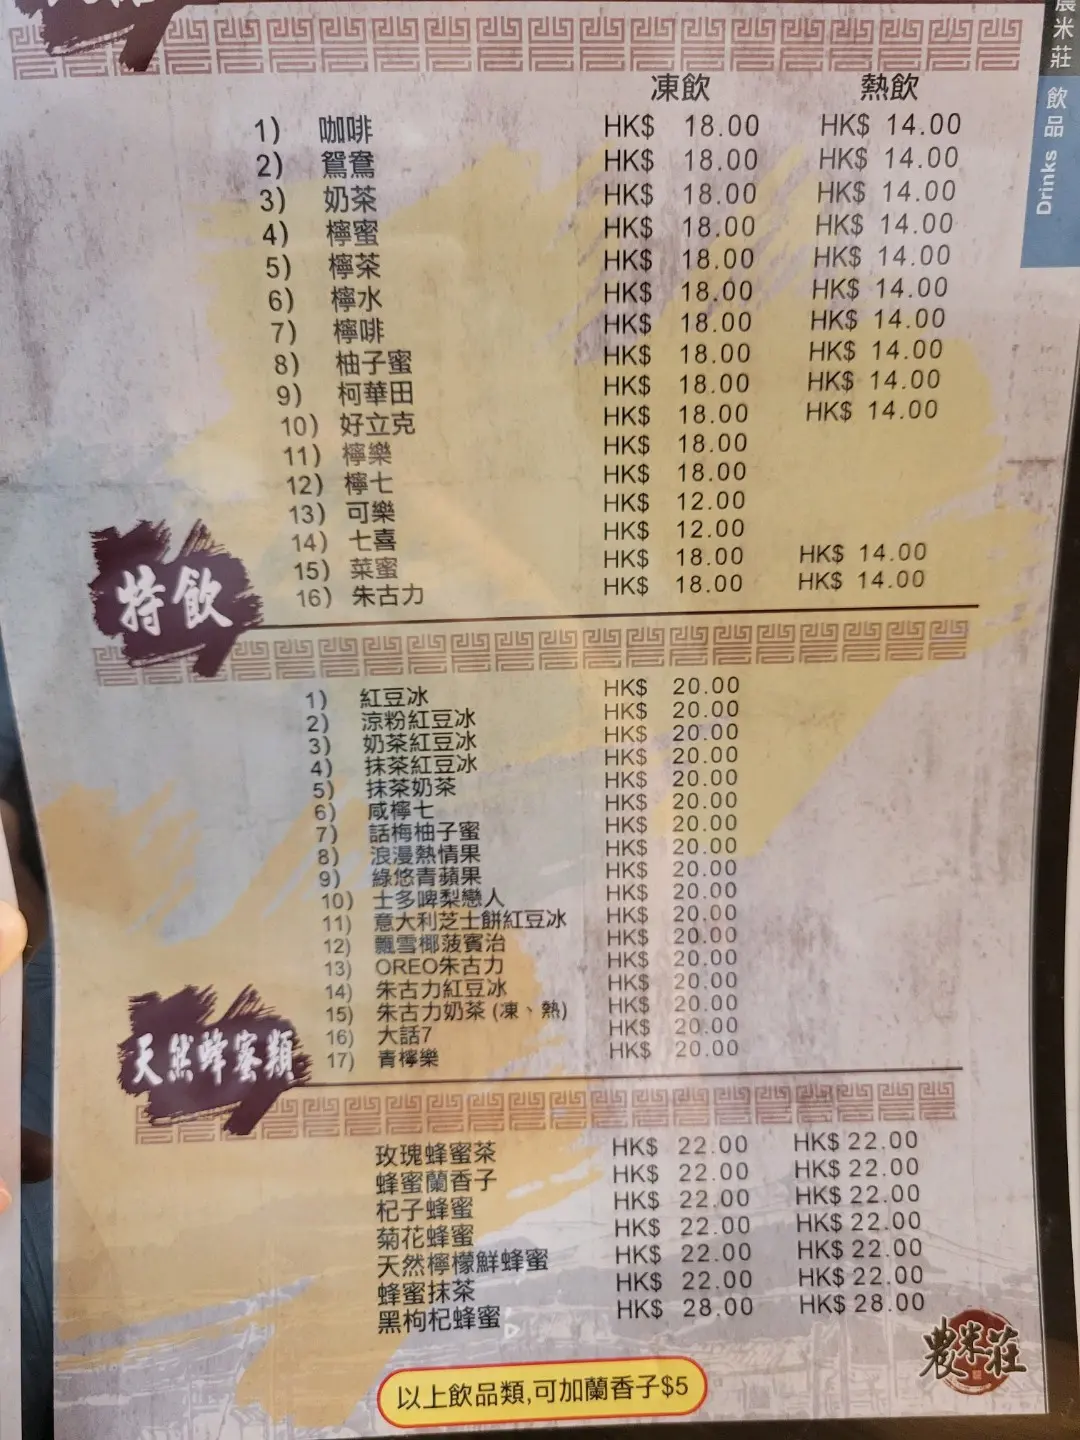 農米莊 飲品 Drinks
凍飲 熱飲
1) 咖啡 HK$ 18.00 HK$ 14.00
2) 鴛鴦 HK$ 18.00 HK$ 14.00
3) 奶茶 HK$ 18.00 HK$ 14.00
4) 檸蜜 HK$ 18.00 HK$ 14.00
5) 檸茶 HK$ 18.00 HK$ 14.00
6) 檸水 HK$ 18.00 HK$ 14.00
7) 檸啡 HK$ 18.00 HK$ 14.00
8) 柚子蜜 HK$ 18.00 HK$ 14.00
9) 柯華田 HK$ 18.00 HK$ 14.00
10) 好立克 HK$ 18.00 HK$ 14.00
11) 檸樂 HK$ 18.00
12) 檸七 HK$ 18.00
13) 可樂 HK$ 12.00
14) 七喜 HK$ 12.00
15) 菜蜜 HK$ 18.00 HK$ 14.00
16) 朱古力 HK$ 18.00 HK$ 14.00
特飲
1) 紅豆冰 HK$ 20.00
2) 涼粉紅豆冰 HK$ 20.00
3) 奶茶紅豆冰 HK$ 20.00
4) 抹茶紅豆冰 HK$ 20.00
5) 抹茶奶茶 HK$ 20.00
6) 咸檸七 HK$ 20.00
7) 話梅柚子蜜 HK$ 20.00
8) 浪漫熱情果 HK$ 20.00
9) 綠悠青蘋果 HK$ 20.00
10) 士多啤梨戀人 HK$ 20.00
11) 意大利芝士餅紅豆冰 HK$ 20.00
12) 飄雪椰菠賓治 HK$ 20.00
13) OREO朱古力 HK$ 20.00
14) 朱古力紅豆冰 HK$ 20.00
15) 朱古力奶茶 (凍、熱) HK$ 20.00
16) 大話7 HK$ 20.00
17) 青檸樂 HK$ 20.00
天然蜂蜜類
玫瑰蜂蜜茶 HK$ 22.00 HK$ 22.00
蜂蜜蘭香子 HK$ 22.00 HK$ 22.00
杞子蜂蜜 HK$ 22.00 HK$ 22.00
菊花蜂蜜 HK$ 22.00 HK$ 22.00
天然檸檬鮮蜂蜜 HK$ 22.00 HK$ 22.00
蜂蜜抹茶 HK$ 22.00 HK$ 22.00
黑枸杞蜂蜜 HK$ 28.00 HK$ 28.00
農米莊
以上飲品類,可加蘭香子$5